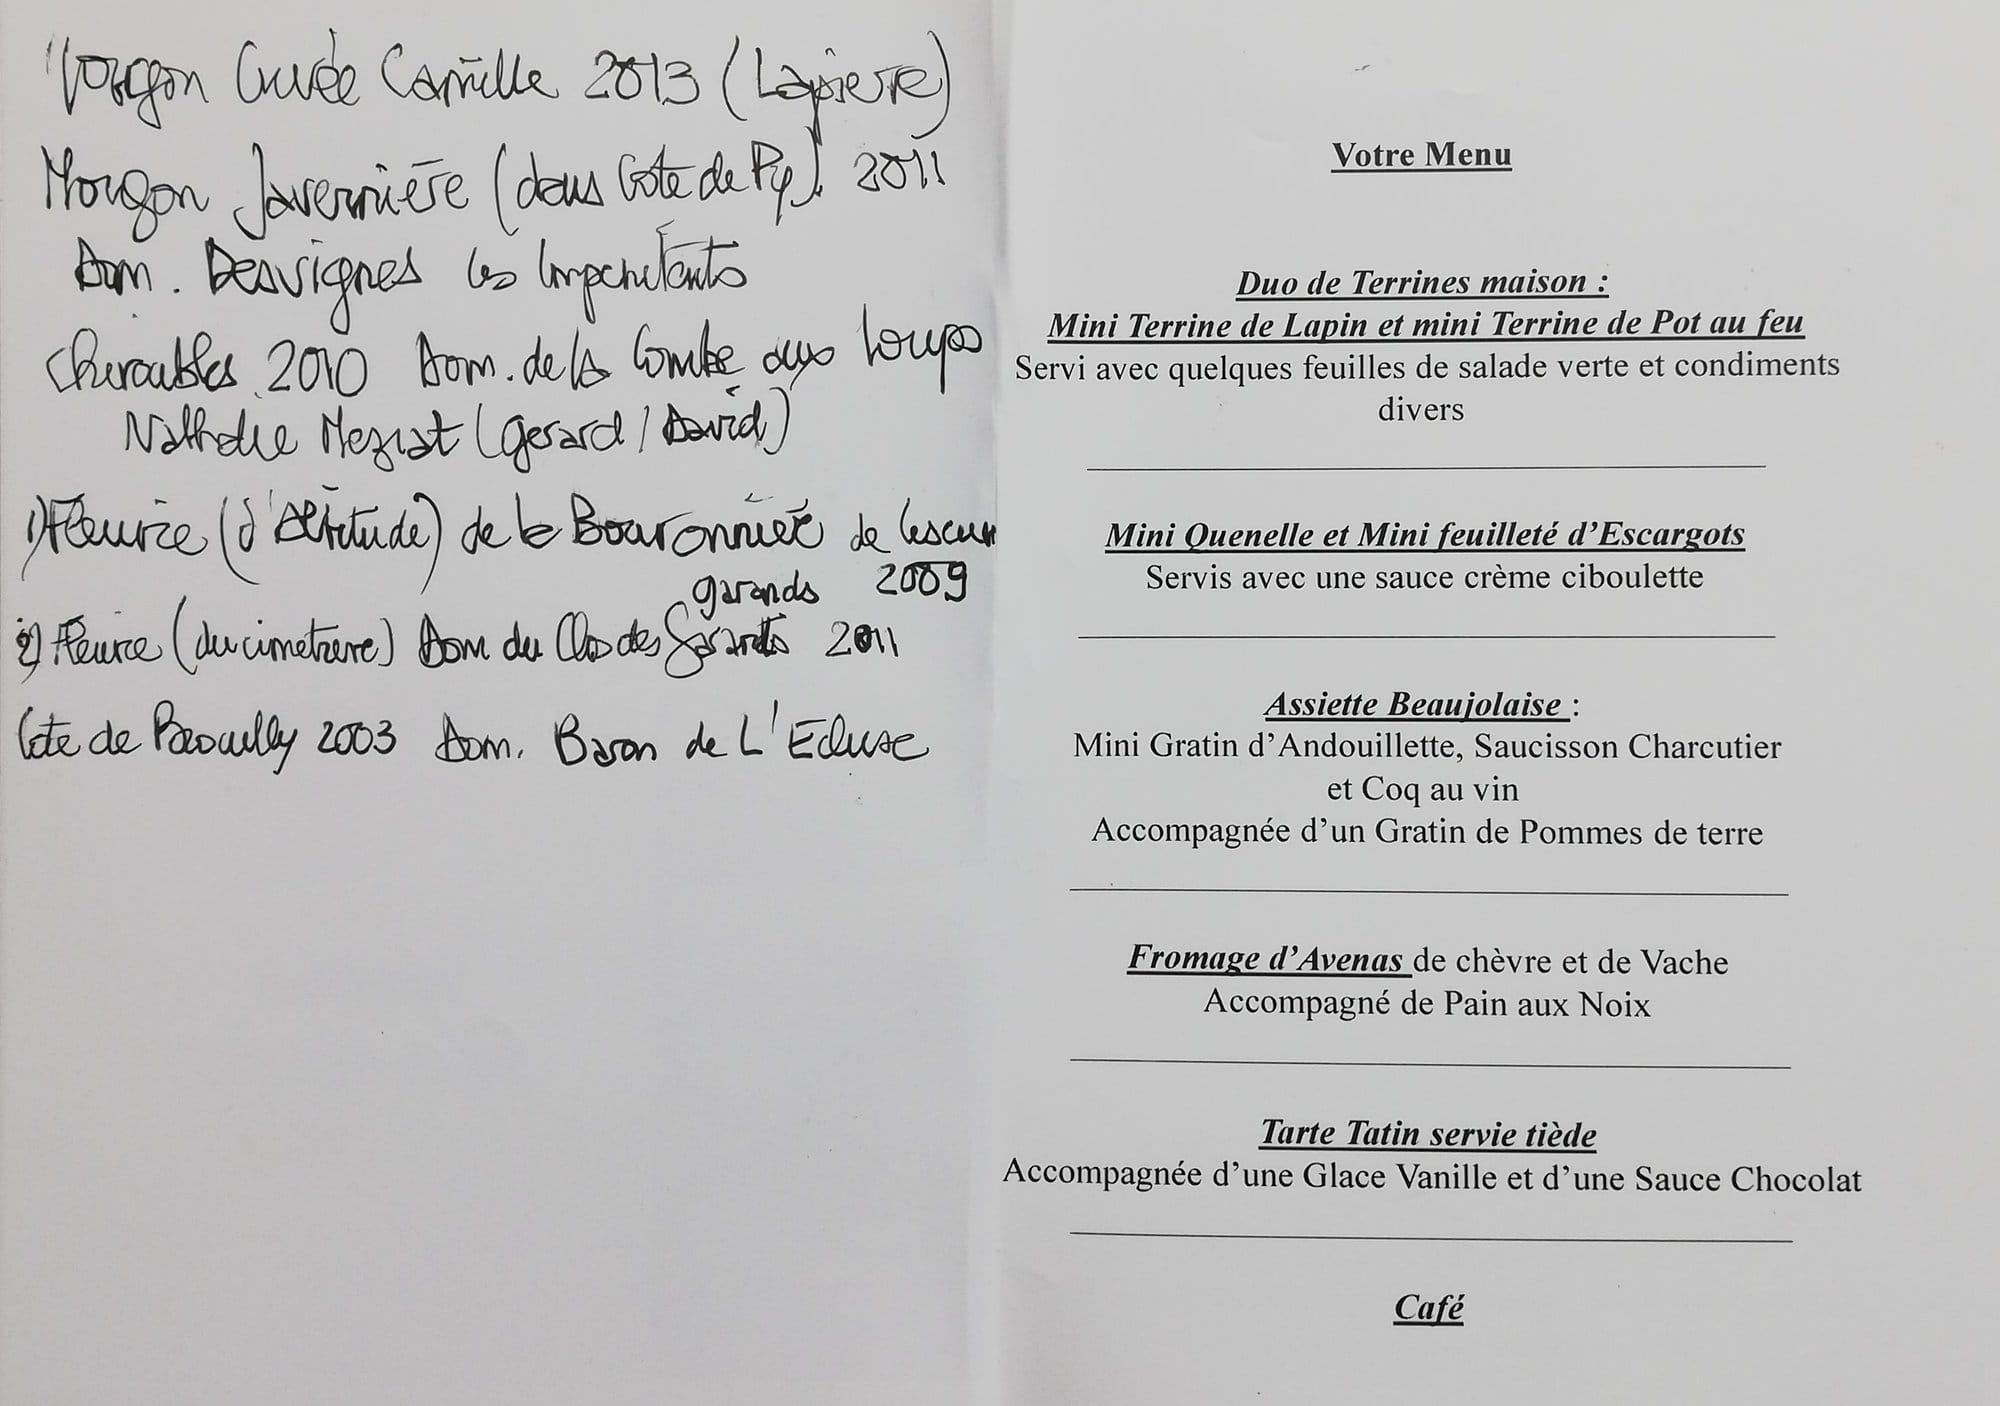 Morgon Cuvée Camille 2013 (Lapierre)
Morgon Javernière (dans Cote de Py) 2011
Dom. Desvignes les Impenitents
Chiroubles 2010 Dom. de la Combe aux Loups
Nathalie Meziat (Gerard / David)
1) Fleurie (d'Altitude) de la Bouronnière de Lescure
garands 2009
2) Fleurie (du cimetiere) Dom du Clos des Garands 2011
Cote de Brouilly 2003 Dom. Baron de L'Ecluse
Votre Menu
Duo de Terrines maison :
Mini Terrine de Lapin et mini Terrine de Pot au feu
Servi avec quelques feuilles de salade verte et condiments
divers
Mini Quenelle et Mini feuilleté d’Escargots
Servis avec une sauce crème ciboulette
Assiette Beaujolaise :
Mini Gratin d’Andouillette, Saucisson Charcutier
et Coq au vin
Accompagnée d’un Gratin de Pommes de terre
Fromage d’Avenas de chèvre et de Vache
Accompagné de Pain aux Noix
Tarte Tatin servie tiède
Accompagnée d’une Glace Vanille et d’une Sauce Chocolat
Café